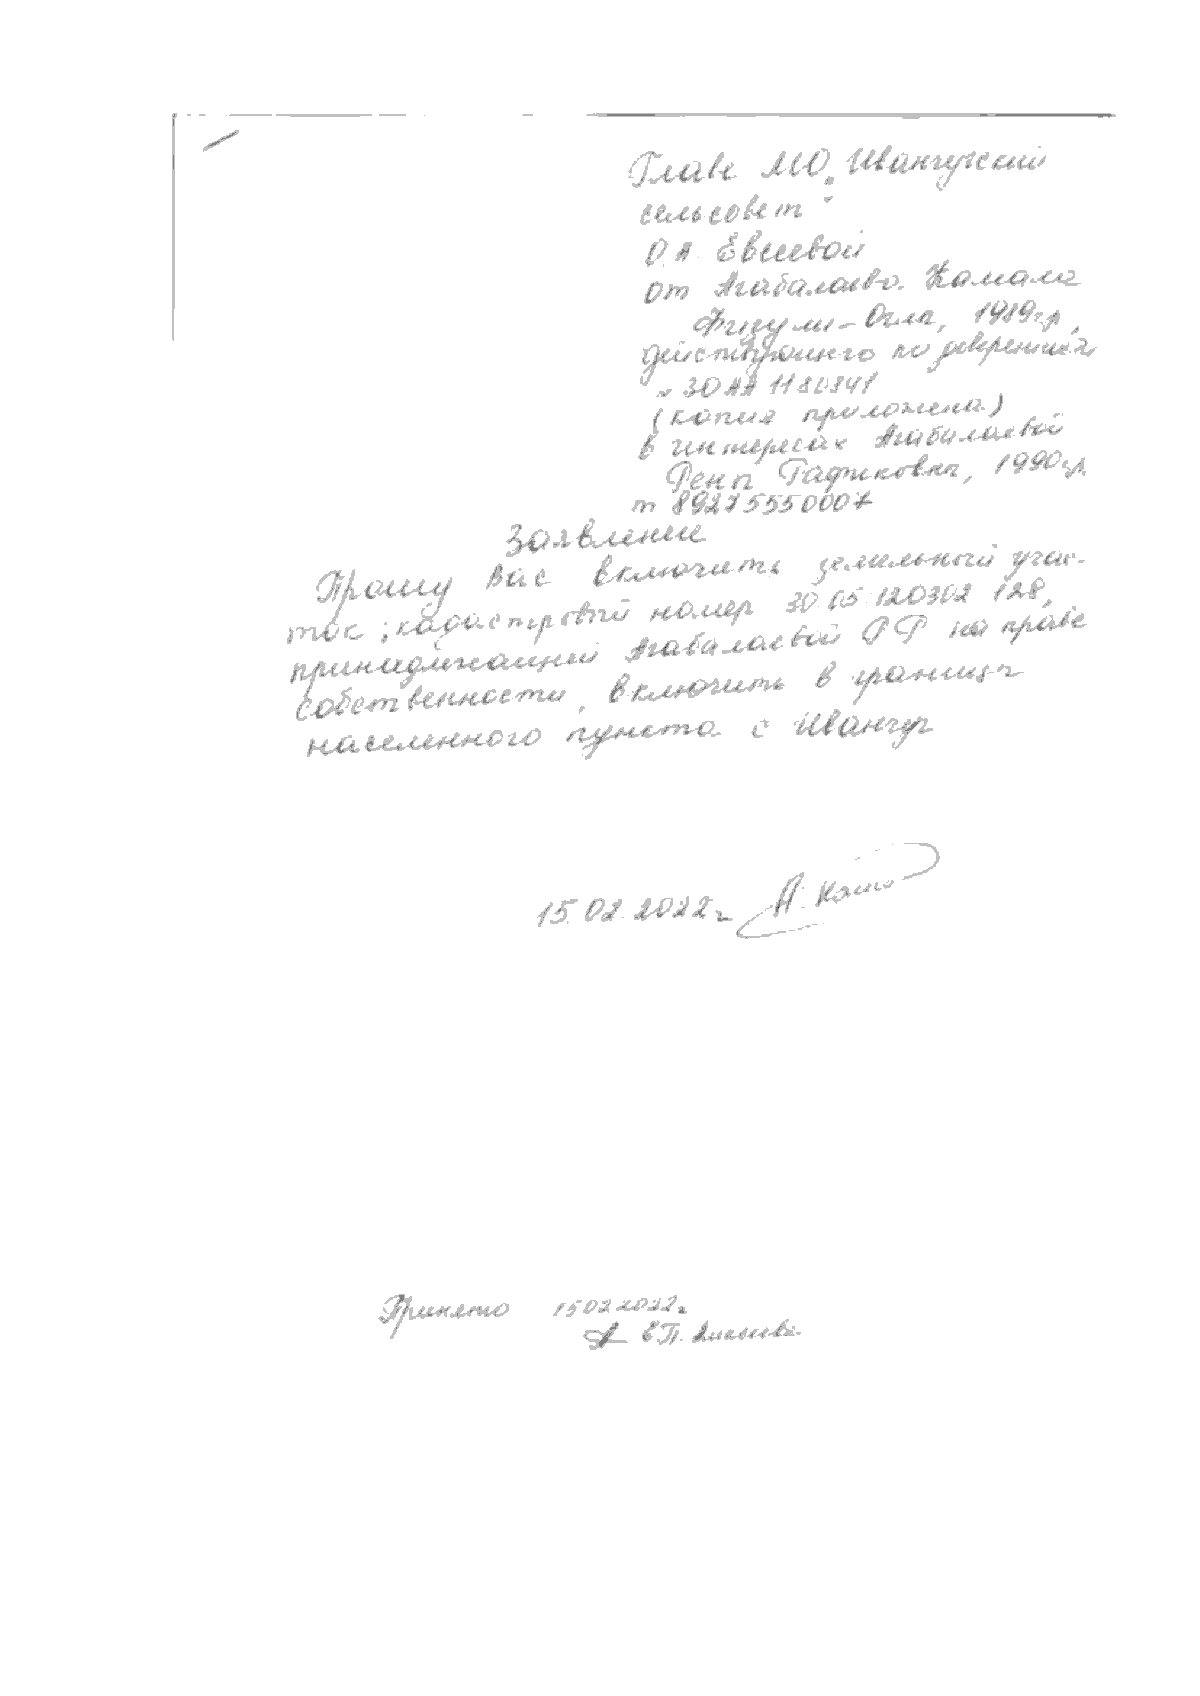 Главе МО "Иванчугский
сельсовет"
О.А. Евсеевой
от Агабалаева Камала
Физули-Оглы, 1989гр,
действующего по доверенности
30АА 1180841
(копия приложена)
в интересах Агабалаевой
Рены Рафиковны, 1990гр.
т 89275550007
Заявление
Прошу Вас включить земельный учас-
ток, кадастровый номер 30:05:120302:128,
принадлежащий Агабалаевой РР на праве
собственности, включить в границы
населенного пункта с Иванчуг
15.02.2022г
Принято 15.02.2022г